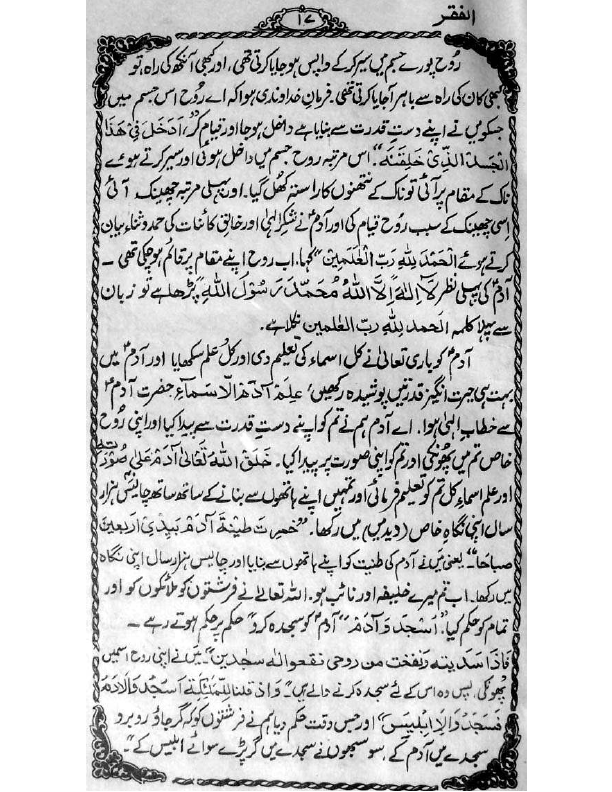 الفقر
۱۷
رُوح پورے جسم میں سیر کر کے واپس ہو جایا کرتی تھی، اور کبھی آنکھ کی راہ، تو
کبھی کان کی راہ سے باہر آ جایا کرتی تھی۔ فرمانِ خداوندی ہوا کہ اے رُوح اس جسم میں
جسکو میں نے اپنے دستِ قدرت سے بنایا ہے داخل ہو جا اور قیام کر، اَدخَل فِیْ ھٰذَا
الْجَسَد الَّذِیْ خَلَقْتَہٗ" اس مرتبہ روح جسم میں داخل ہوئی اور سیر کرتے ہوئے
ناک کے مقام پر آئی تو ناک کے نتھنوں کا راستہ کھُل گیا۔ اور پہلی مرتبہ چھینک آئی
اِسی چھینک کے سبب رُوح قیام کی اور آدمؑ نے شکرِ الٰہی اور خالقِ کائنات کی حمد و ثناء بیان
کرتے ہوئے اَلْحَمْدُ لِلّٰہِ رَبِّ الْعٰلَمِیْنَ" کہا، اب روح اپنے مقام پر قائم ہو چکی تھی ۔
آدمؑ کی پہلی نظر لَآ اِلٰہَ اِلَّا اللّٰہُ مُحَمَّدٌ رَسُوْلُ اللّٰہِ" پڑھا ہے تو زبان
سے پہلا کلمہ اَلحَمد لِلّٰہِ رَبِّ العٰلمین نکلا ہے۔
آدمؑ کو باری تعالٰی نے کل اسماء کی تعلیم دی اور کُل علم سکھایا اور آدمؑ میں
بہت سی حیرت انگیز قدرتیں پوشیدہ رکھیں، عَلِمَ اٰدَمَ الْاَسمَآءِ حضرت آدمؑ
سے خطابِ الٰہی ہوا۔ اے آدم ہم نے تم کو اپنے دستِ قدرت سے پیدا کیا اور اپنی رُوح
خاص تم میں پھونکی اور تم کو اپنی صورت پر پیدا کیا۔ خَلَقَ اللّٰہُ تَعَالٰی اٰدَمَ عَلٰی صُوْرَتِہٖ
اور علم اسماءِ کل تم کو تعلیم فرمائی اور تمہیں اپنے ہاتھوں سے بنانے کے ساتھ ساتھ چالیس ہزار
سال اپنی نگاہِ خاص (دید میں) میں رکھا۔ "خمرت طینۃ اٰدمَ بِیَدِیْ اربعین
صباحاً"۔ یعنی میں نے آدم کی طنیت کو اپنے ہاتھوں سے بنایا اور چالیس ہزار سال اپنی نگاہ
میں رکھا۔ اب تم میرے خلیفہ اور نائب ہو۔ اللہ تعالٰی نے فرشتوں کو ملائکوں کو اور
تمام کو حکم کیا۔ اَسْجُدْ وَآدَمَ" آدمؑ کو سجدہ کرو" حکم پر حکم ہوتے رہے ۔
فَاِذَا سَدَیتہ وَنفخت من روحی نقعوالہ سٰجدین"۔ میں نے اپنی روح اسمیں
پھونکی، پس وہ اس کے لئے سجدہ کرنے والے ہیں"۔ وَاِذ قلنا للمَلٰئِکَۃ اَسجُد وَالادَمَ
فَسَجدُ وَالا اِبْلِیسَ" اور جس وقت حکم دیا ہم نے فرشتوں کو کہ گر جاؤ روبرو
سجدے میں آدم کے، سو سبھوں نے سجدے میں گر پڑے سوائے ابلیس کے"۔